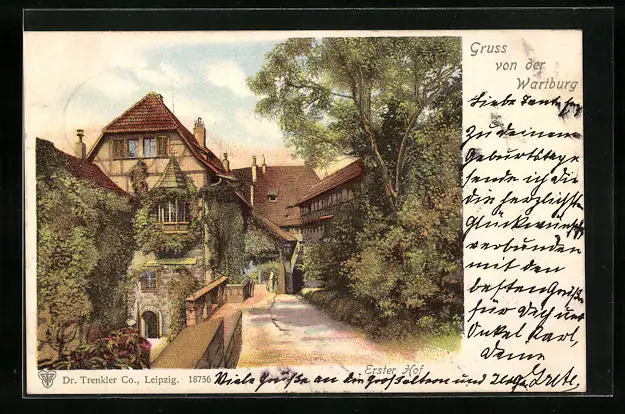 Gruss
von der
Wartburg
Liebe Tante
Zu deinem
Geburtstage
sende ich dir
die herzlichsten
Glückwünsche
verbunden
mit den
besten Grüßen
für Dich und
Onkel Karl,
Deine
Grete.
Erster Hof
Dr. Trenkler Co., Leipzig. 18756
Viele Grüße an die Großeltern und